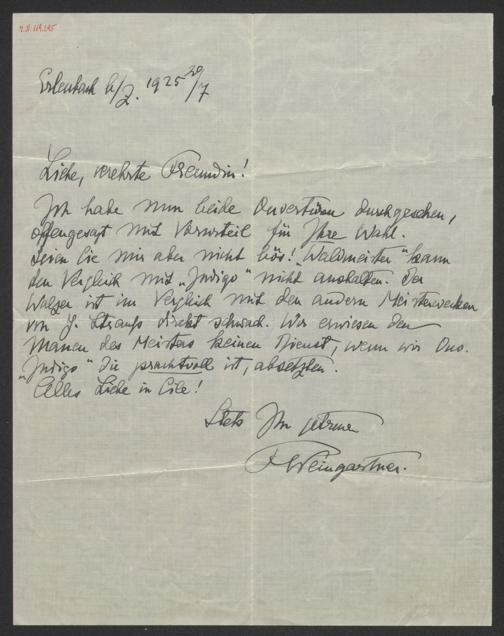 Erlenbach b/Z. 1925 20/7
Liebe, verehrte Freundin!
Ich habe nun beide Ouvertüren durchgesehen,
offengesagt mit Vorurteil für Ihre Wahl.
Seien Sie mir aber nicht bös! „Waldmeister" kann
den Vergleich mit „Indigo" nicht aushalten. Der
Walzer ist im Vergleich mit den andern Meisterwerken
von J. Strauß direkt schwach. Wir erwiesen den
Manen des Meisters keinen Dienst, wenn wir Ouv.
„Indigo" die prachtvoll ist, absetzten.
Alles Liebe in Eile!
Stets Ihr getreuer
F Weingartner.